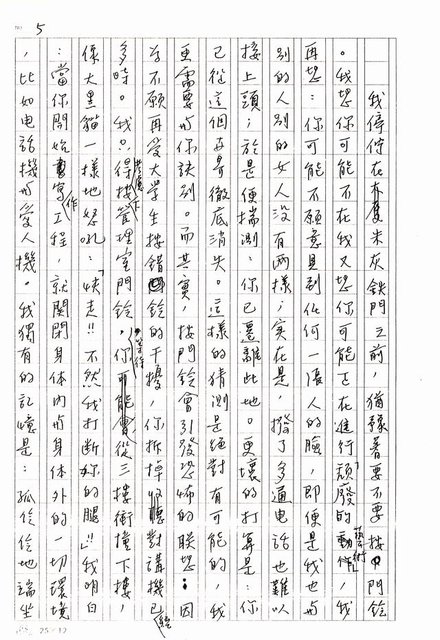 5
我停佇在灰鐵門之前，猶豫著要不要按門鈴
。我想你可能不在我又想你可能正在進行頹廢的「藝術」動作，我
再想：你可能不願意見到任何一張人的臉，即便是我也與
別的人別的女人沒有兩樣；實在是，撥了多通電話也難以
接上頭；於是便揣測：你已遷離此地。更壞的打算是：你
已從這個世界徹底消失。這樣的猜測是絕對有可能的，我
更需要與你訣別。而其實，按門鈴會引發恐怖的聯想：因
為不願再受大學生按錯鈴的干擾，你拆掉對講機已經
多時。我只得按管理室門鈴，你可能會從三樓衝撞下樓，
像大黑貓一樣地怒吼：「快走!!不然我打斷妳的腿!!」我明白
：當你開始寫作工程，就關閉身体內與身体外的一切環境
，比如电話機與愛人機。我獨有的記憶是：孤伶伶地端坐
25×12